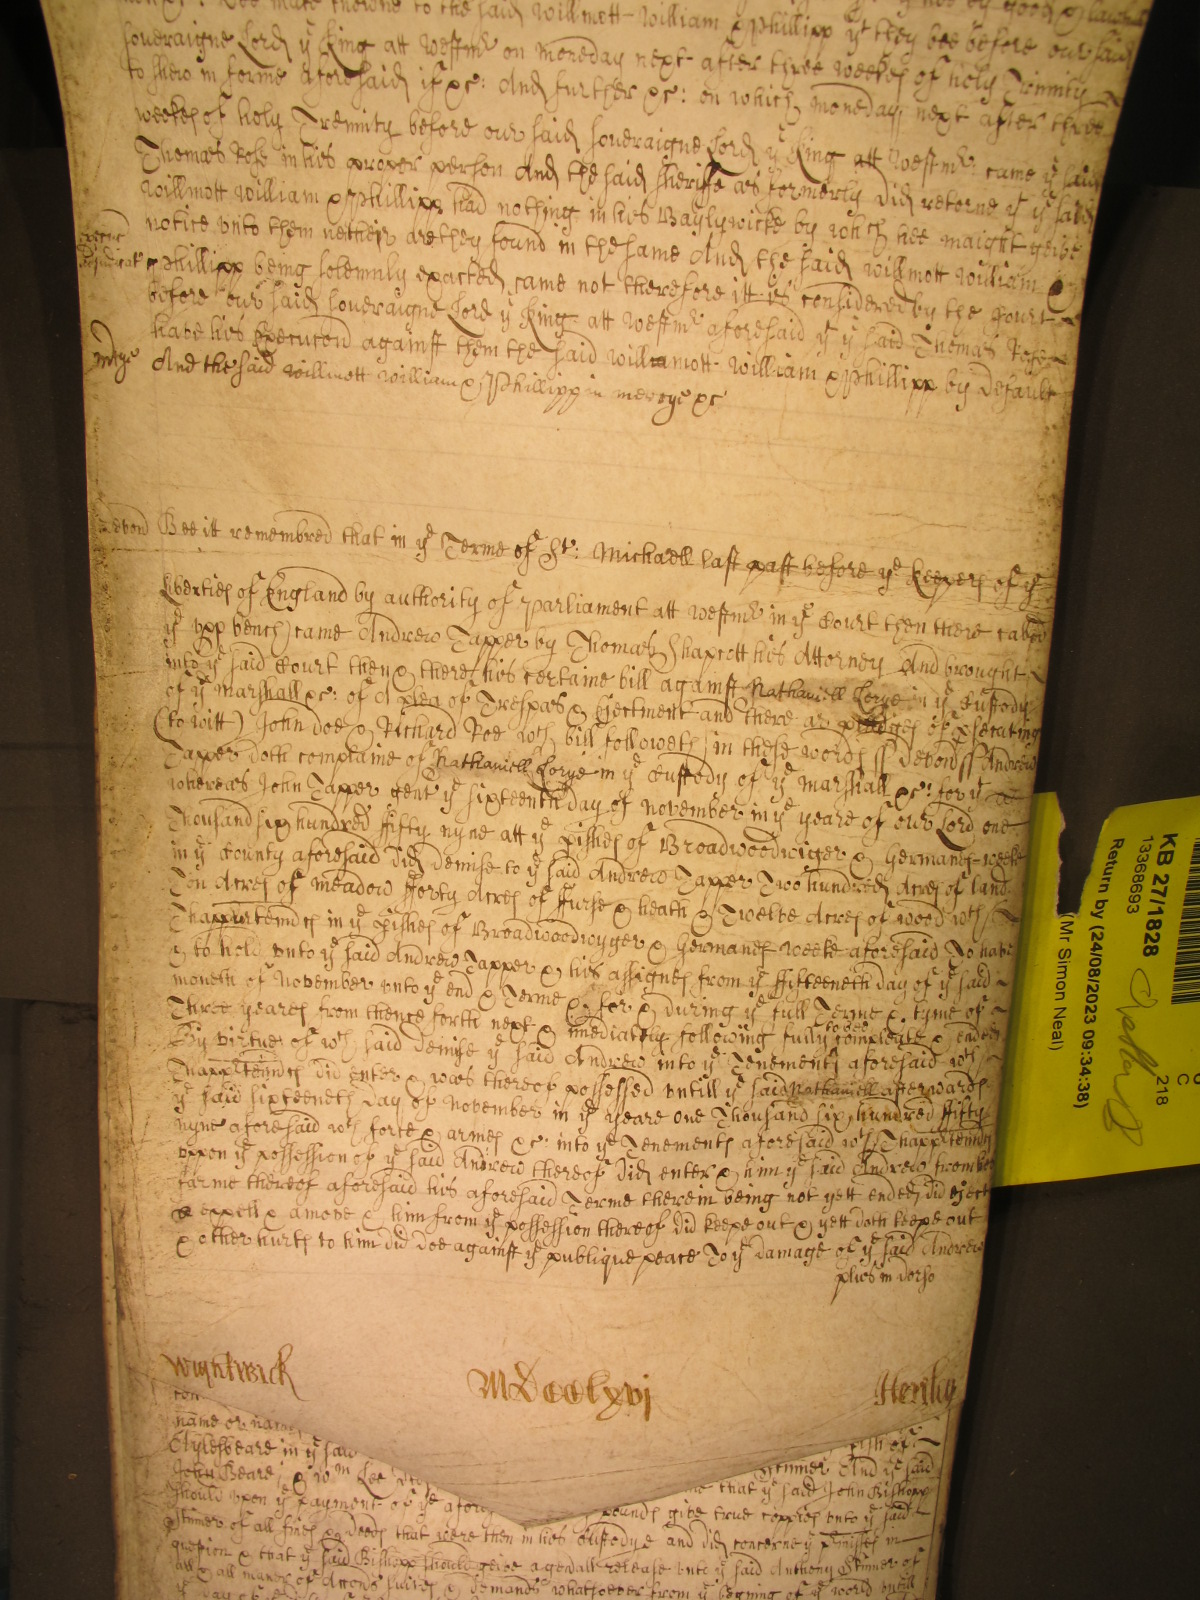 bee made knowne to the said Willmott William & Phillipp yt they bee before our said
soveraigne Lord ye King att Westmr on Moneday next after three weekes of holy Trinnity
to shew in forme aforesaid if &c: And further &c: on which Moneday next after three
weekes of holy Trennity before our said soveraigne Lord ye King att Westmr came ye said
Thomas Rose in his proper person And the said Sheriffe as formerly did retorne yt ye said
Willmott William & Phillipp had nothing in his Baylywicke by which hee maight geive
notice unto them neither are they found in the same And the said Willmott William &
Phillipp being solemnly exacted came not therefore itt is considered by the Court
before our said soveraigne Lord ye King att Westmr aforesaid yt ye said Thomas Rose
have his Execucon against them the said Willmott William & Phillipp by default
mcye And the said Willmott William & Phillipp in mercye &c
Devon Bee itt remembred that in ye Terme of St: Michaell last past before ye Keepers of ye
liberties of England by authority of Parliament att Westmr in ye Court then there called
ye upp bench came Andrew Tapper by Thomas Shapcott his Attorney And brought
into ye said Court then & there his certaine bill against Nathaniell Corye in ye Custody
of ye Marshall &c: of A plea of Trespas & Ejectment and there ar pledges of psecuting
(to witt) John doe & Richard Roe wch bill followeth in these words ss Devon ss Andrew
Tapper doth complaine of Nathaniell Corye in ye Custody of ye Marshall &c: for yt
whereas John Tapper gent ye sixteenth day of November in ye yeare of our Lord one
Thousand six hundred fifty nyne att ye pishes of Broadwoodwiger & Germans-weeke
in ye County aforesaid did demise to ye said Andrew Tapper Two hundred Acres of land
Ten Acres of meadow fforty Acres of ffurse & heath & Twelve Acres of wood wth
Thappurtenncs in ye pishes of Broadwoodwyger & Germans weeke aforesaid To have
& to hold unto ye said Andrew Tapper & his assignes from ye ffifteenth day of ye said
moneth of November unto ye end & Terme & for & during ye full Terme & tyme of
Three yeares from thence forth next & imediately following fully to bee compleate & ended
By virtue of wch said demise ye said Andrew into ye Tenements aforesaid wth
Thappurtenncs did enter & was thereof possessed untill ye said Nathaniell afterwards
ye said sixteenth day of November in ye yeare one Thousand six hundred ffifty
nyne aforesaid wth force & armes &c: into ye Tenements aforesaid wth Thappurtenncs
uppon ye possession of ye said Andrew thereof did enter & him ye said Andrew from his
farme thereof aforesaid his aforesaid Terme therein being not yett ended did eject
expell & amove & him from ye possession thereof did keepe out & yett doth keepe out
& other hurts to him did doe against ye publique peace To ye damage of ye said Andrew
plus in dorso
Wightwick MDcclxvj Henley
name or
Clylesbeare in ye said pish of
John Beare & Wm Lee Skinner And ye said
should upon ye payment of ye that ye said John Bishopp
Skinner of all fines & deeds that were then in his Custodye and did concerne ye pmisses in
question & that ye said Bishopp should geive a genall release unto ye said Anthony Skinner of
all & all manner of Accons suites & demands whatsoever from ye begining of ye world untill
KB 27/1828
13368693
Return by (24/08/2023 09:34:38)
(Mr Simon Neal)
C
218